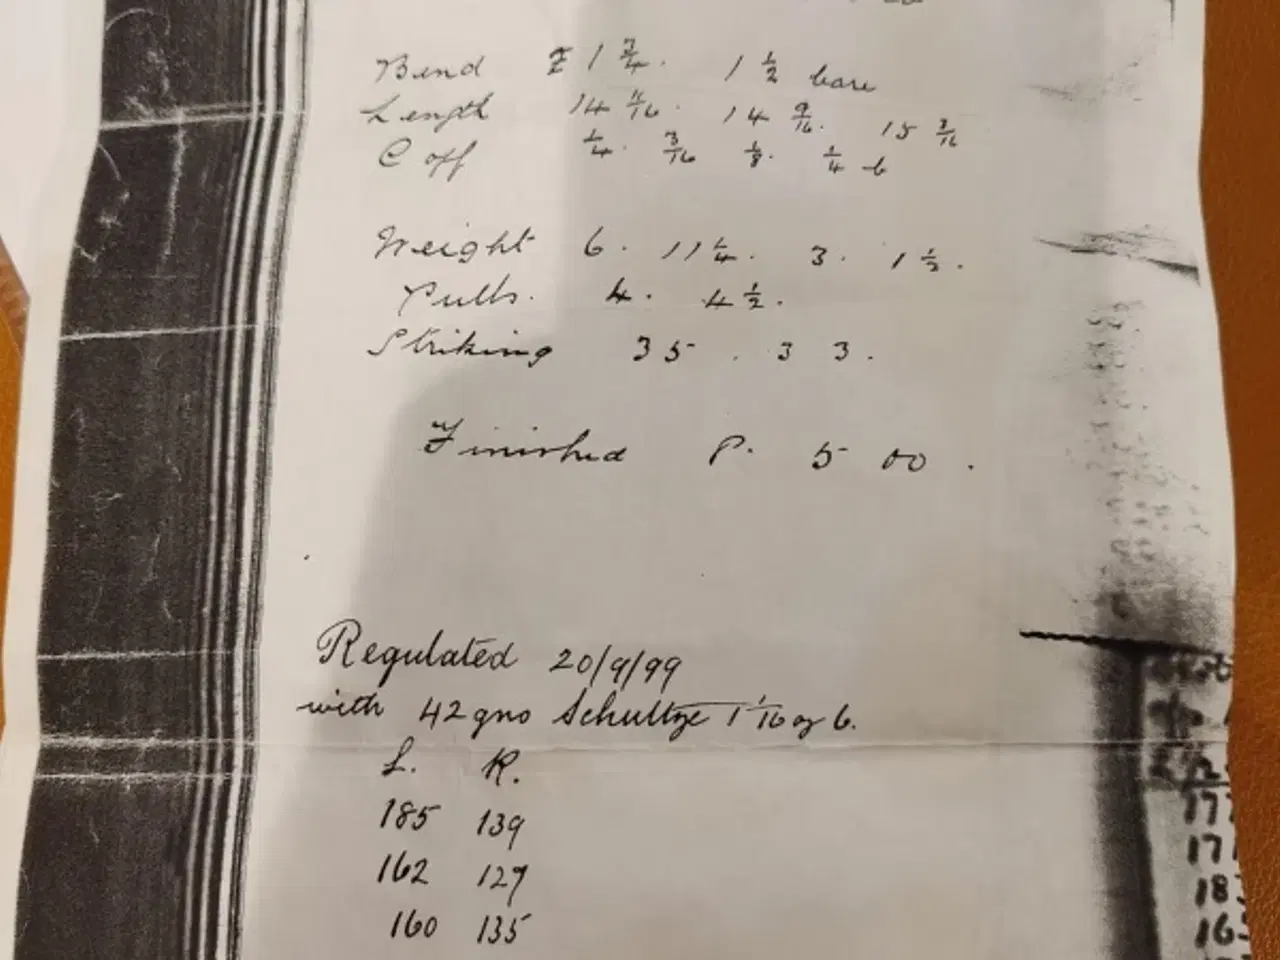 Bend 1 3/4. 1 1/2 bare
Length 14 11/16. 14 9/16. 15 3/16
C off 1/4. 3/16 1/8. 1/4 b
Weight 6. 11 1/4. 3. 1 1/2.
Pulls. 4. 4 1/2.
Striking 35. 33.
Finished P. 5 00.
Regulated 20/9/99
with 42 grs Schultze 1 1/16 oz 6.
L. R.
185 139
162 127
160 135